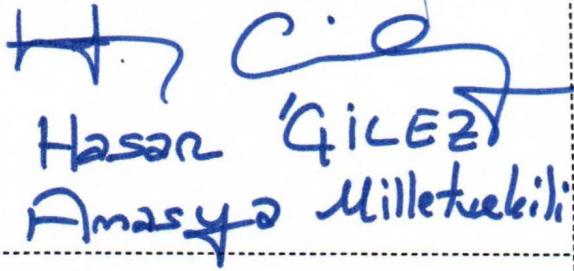 Hasan ÇİLEZ
Amasya Milletvekili